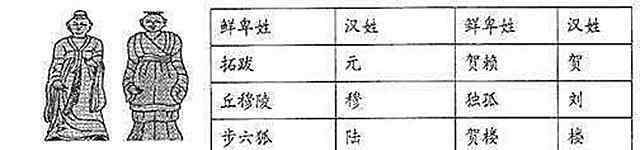 鲜卑姓 汉姓 鲜卑姓 汉姓
拓跋 元 贺赖 贺
丘穆陵 穆 独孤 刘
步六狐 陆 贺楼 楼